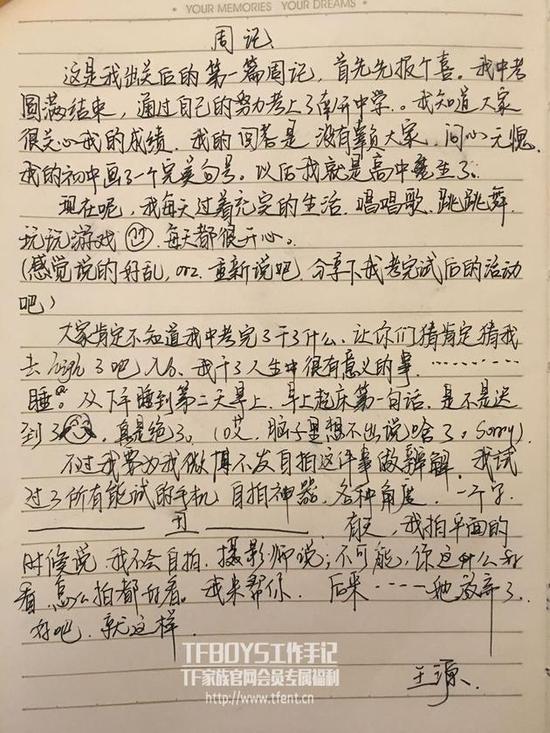 YOUR MEMORIES YOUR DREAMS
周记
这是我出关后的第一篇周记，首先先报个喜。我中考
圆满结束，通过自己的努力考上了南开中学。。我知道大家
很关心我的成绩，我的回答是没有辜负大家，问心无愧
我的初中画了一个完美句号。以后我就是高中生了。
现在呢，我每天过着充实的生活，唱唱歌、跳跳舞
玩玩游戏 每天都很开心。
(感觉说的好乱，orz，重新说吧，分享下我考完试后的活动
吧)
大家肯定不知道我中考完了干了什么，让你们猜肯定猜我
去 了吧，No，我干了人生中很有意义的事………
睡。从下午睡到第二天早上，早上起床第一句话，是不是迟
到了 ，真是绝了。(哎，脑子里想不出说啥了，Sorry)
不过我要为我微博不发自拍这件事做辩解，我试
过了所有能试的手机 自拍神器，各种角度，一个字
丑
有天，我拍平面的
时候说，我不会自拍，摄影师说；不可能，你这
看，怎么拍都好看。我来帮你，后来……她放弃了。
好吧，就这样
王源.
TFBOYS工作手记
TF家族官网会员专属福利
http://www.tfent.cn